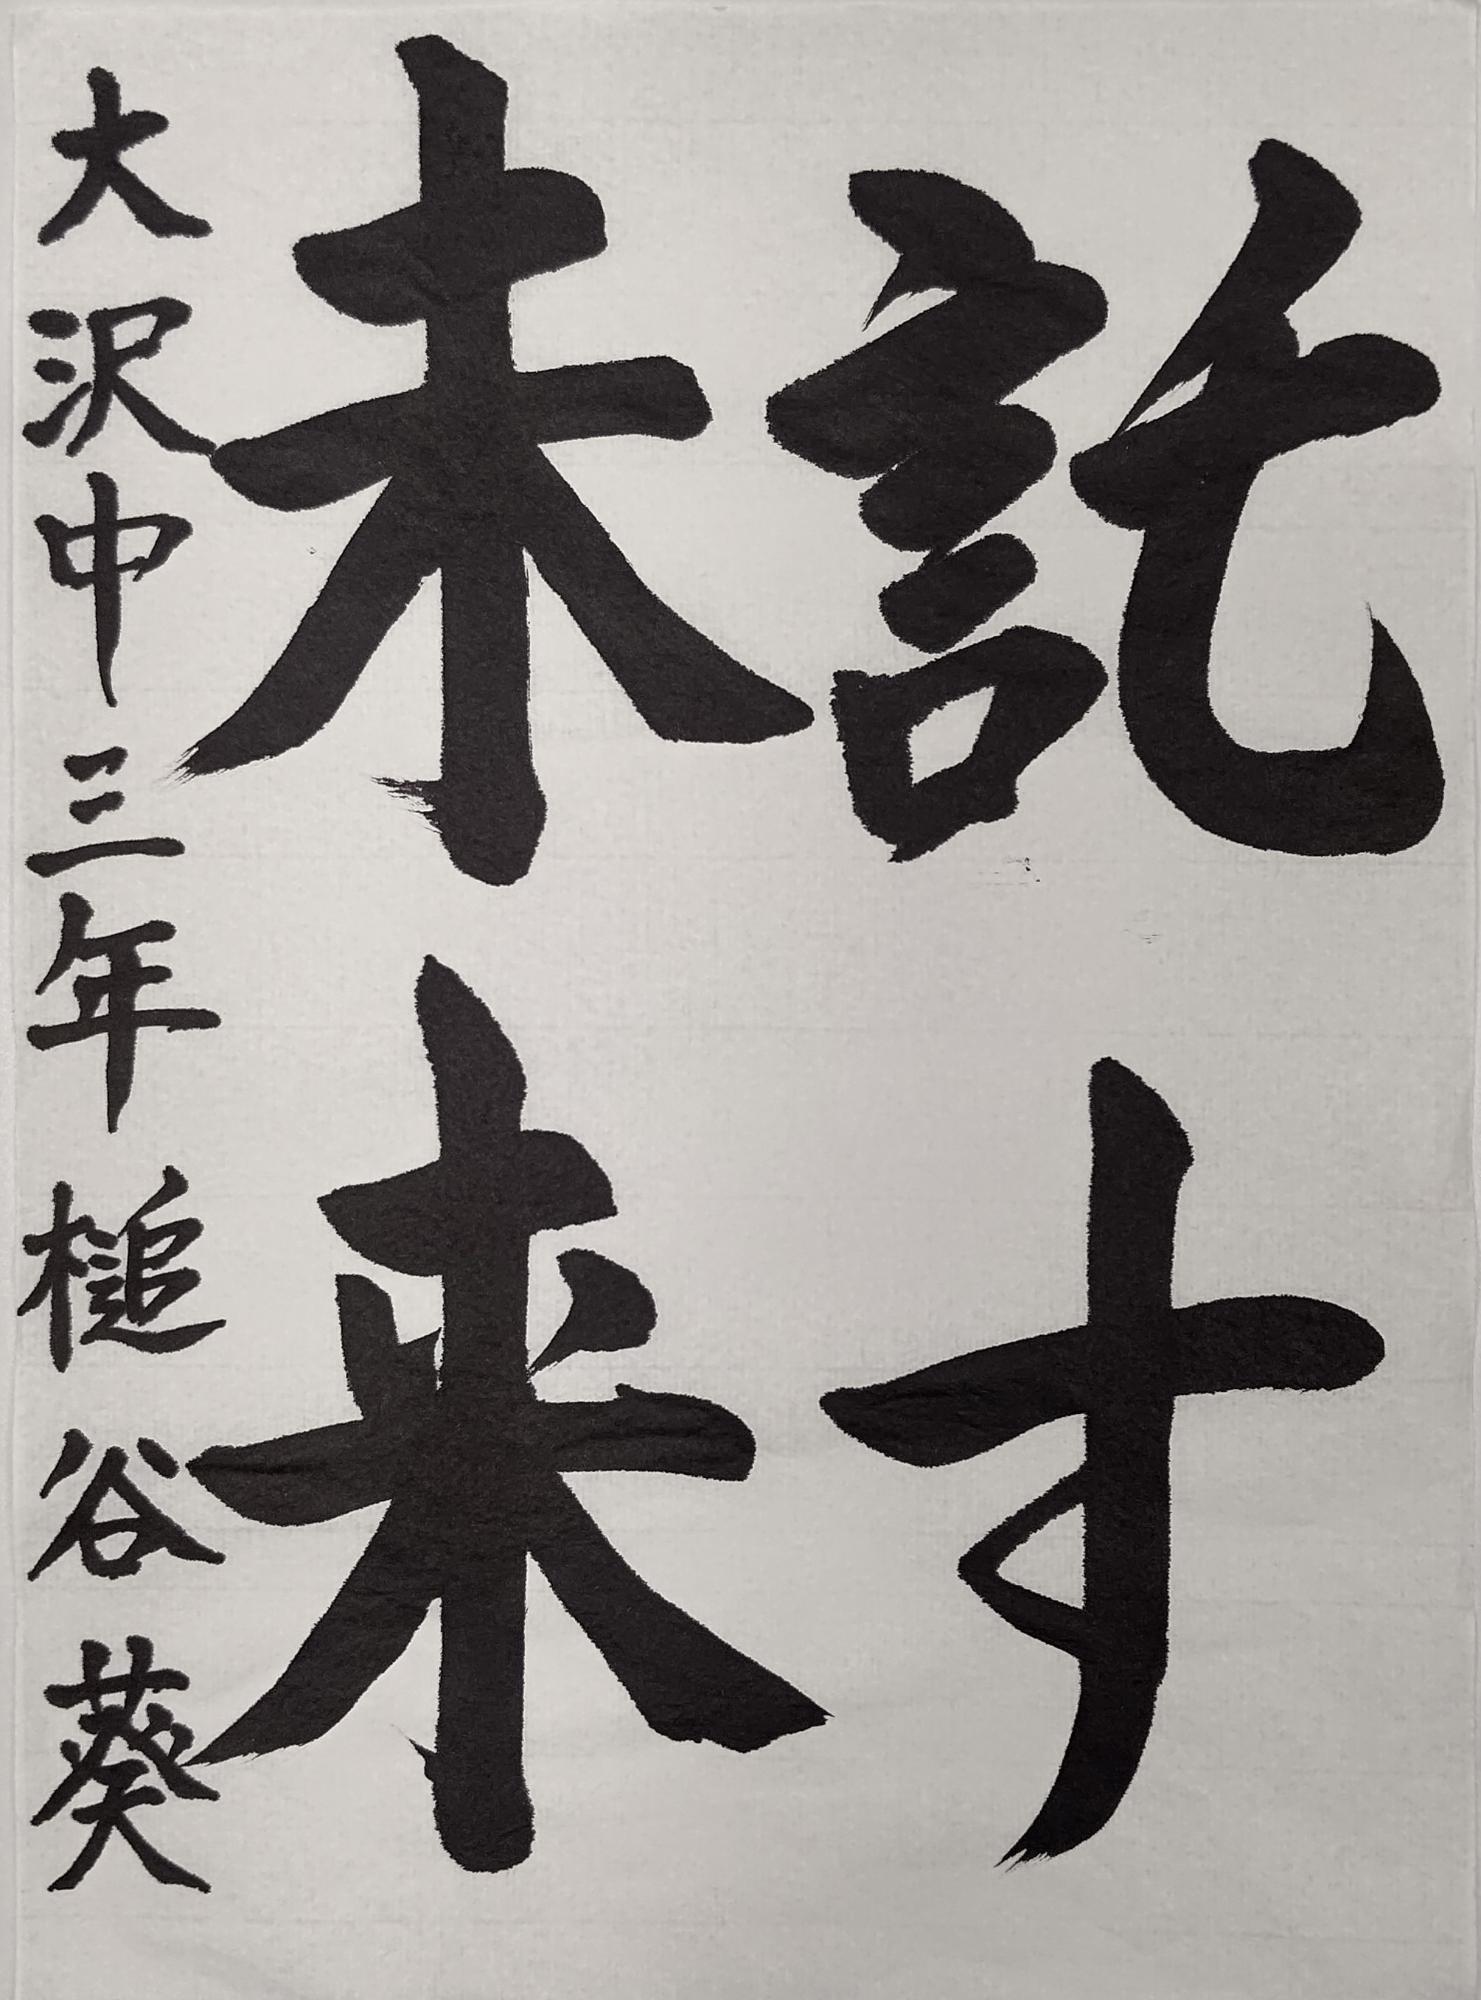 託す
未来
大沢中三年槌谷葵